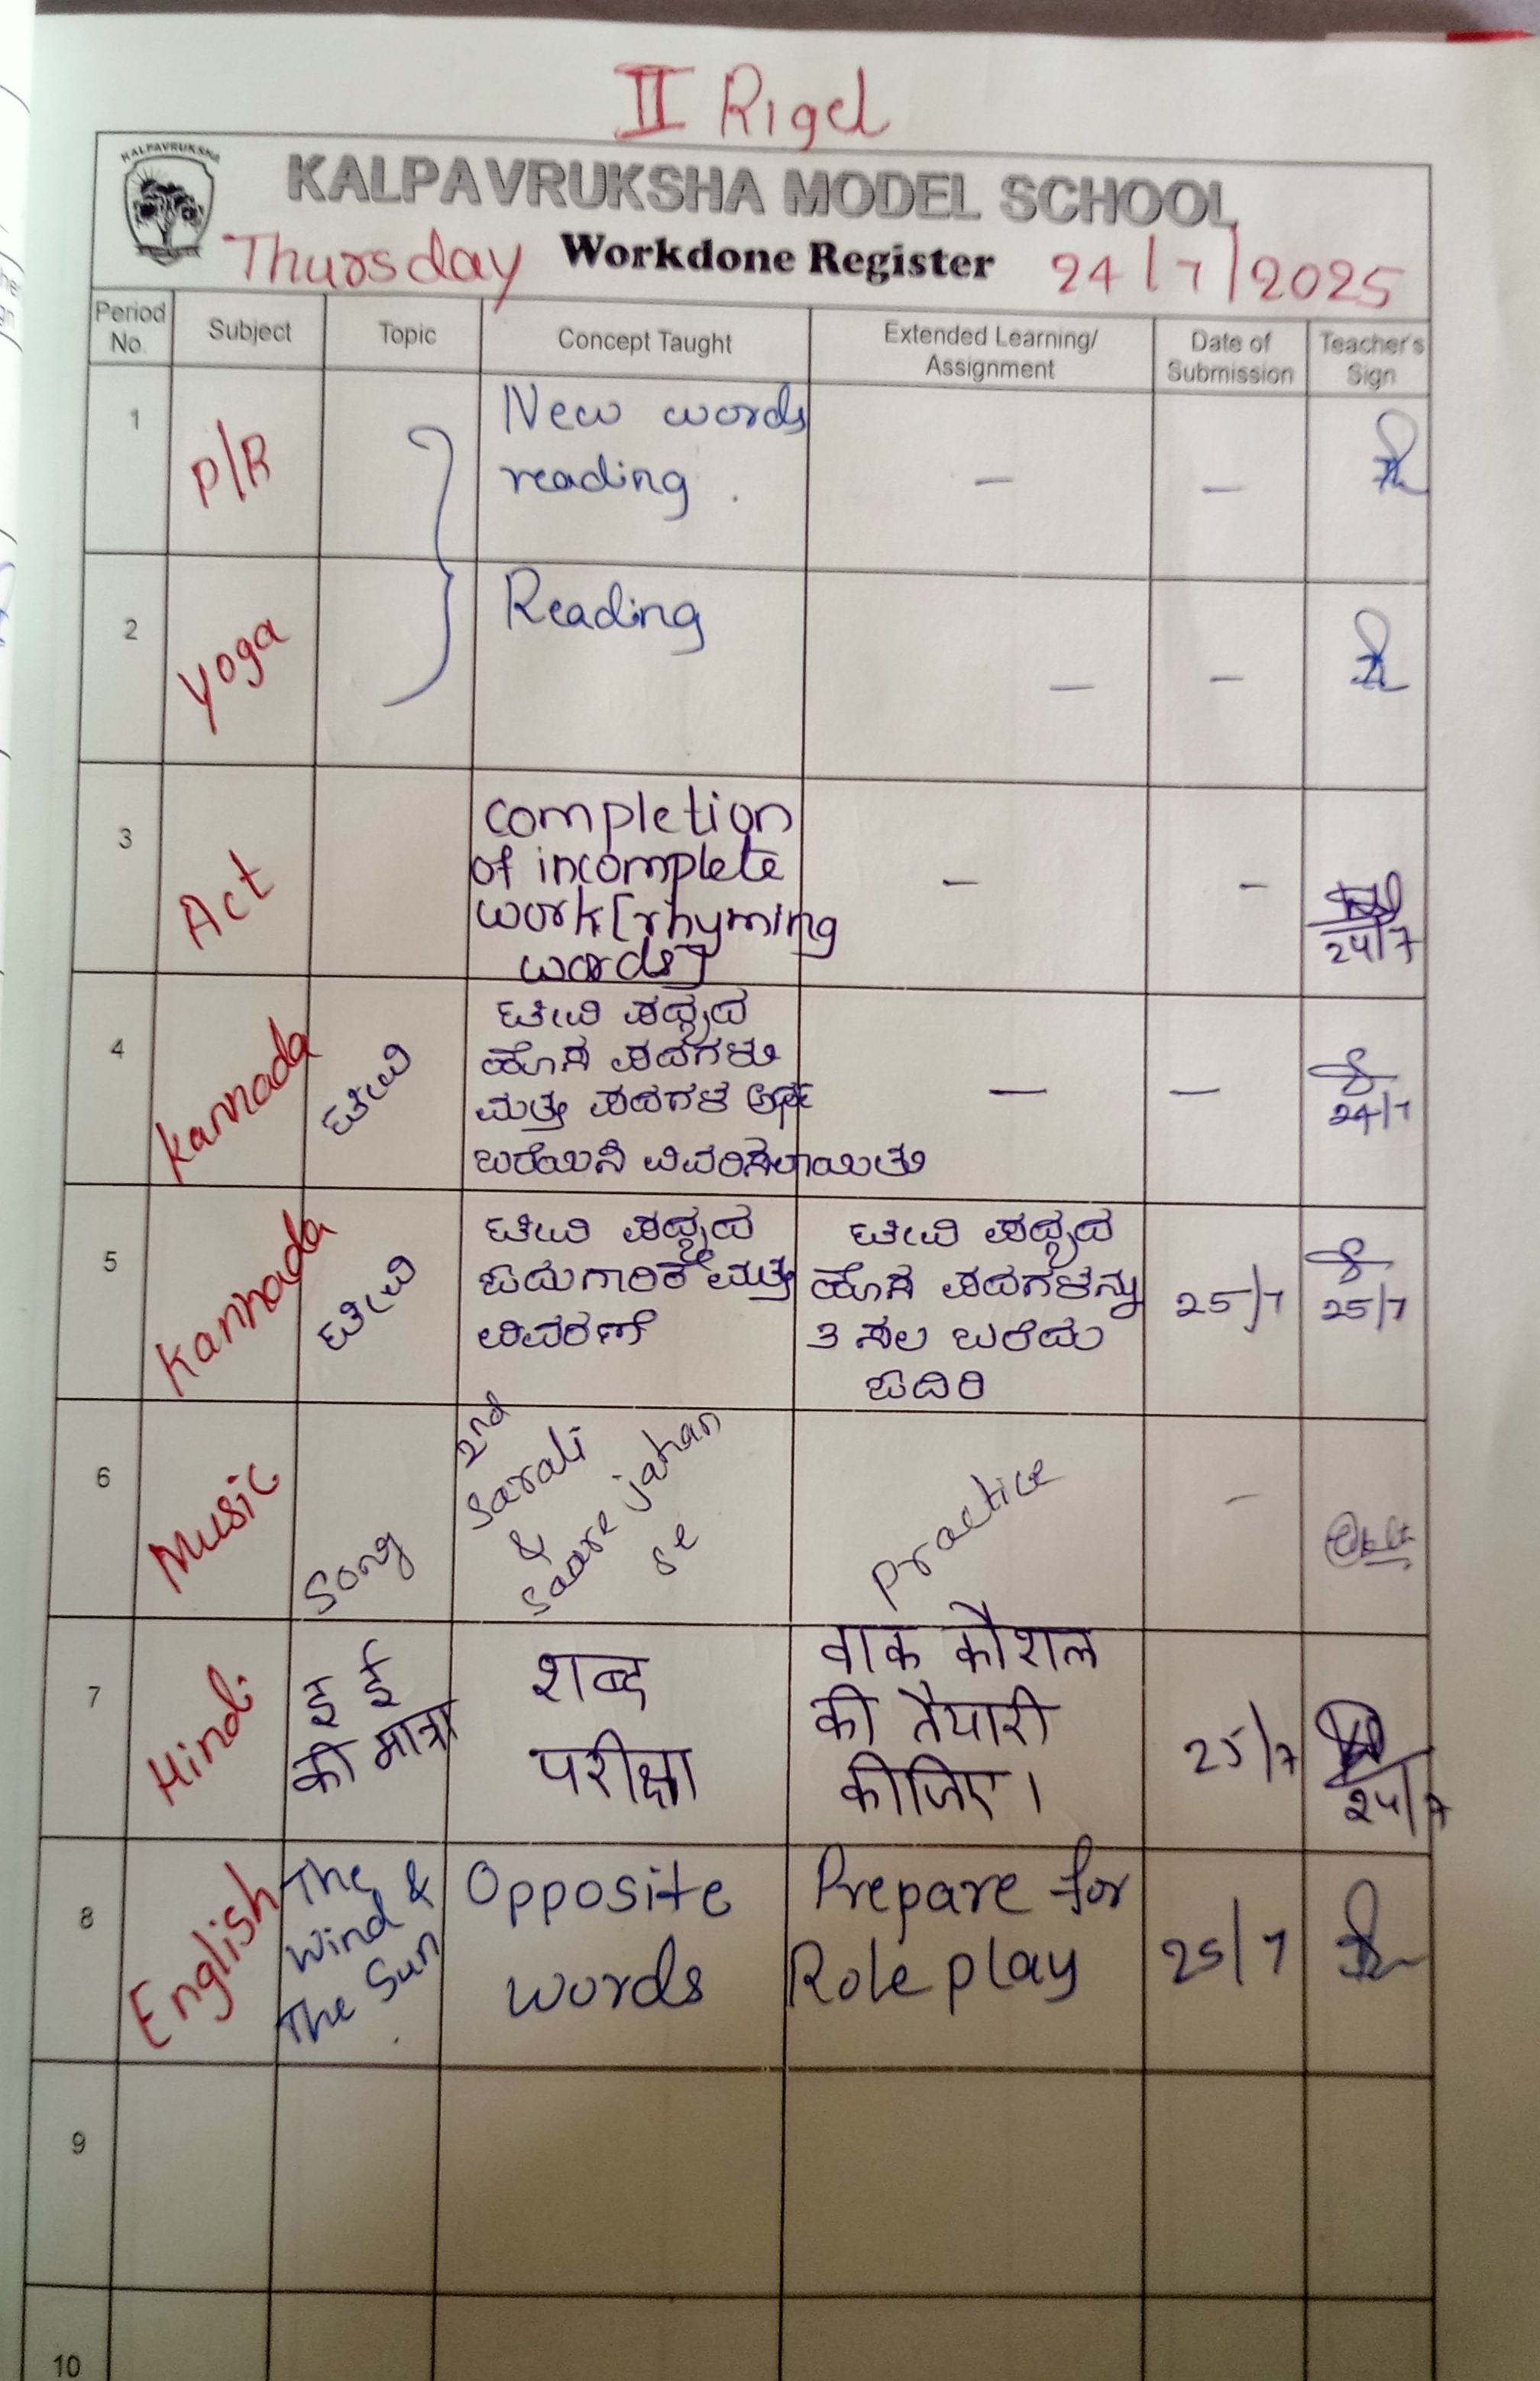 II Rigel
KALPAVRUKSHA
KALPAVRUKSHA MODEL SCHOOL
Thursday Workdone Register 24/7/2025
Period No. Subject Topic Concept Taught Extended Learning/ Assignment Date of Submission Teacher's Sign
1 P/R New words
reading. – –
2 Yoga Reading – –
3 Act completion
of incomplete
work [rhyming
words] – –
24/7
4 kannada ಟೀವಿ ಟೀವಿ ಪದ್ಯದ
ಹೊಸ ಪದಗಳು
ಮತ್ತು ಪದಗಳ ಅರ್ಥ
ಬರೆಯಿಸಿ ವಿವರಿಸಲಾಯಿತು — —
24/7
5 kannada ಟೀವಿ ಟೀವಿ ಪದ್ಯದ
ಓದುಗಾರಿಕೆ ಮತ್ತು
ವಿವರಣೆ
ಟೀವಿ ಪದ್ಯದ
ಹೊಸ ಪದಗಳನ್ನು
3 ಸಲ ಬರೆದು
ಓದಿರಿ
25/7 25/7
6 Music Song 2nd
Sarali
&
saare jahan
se
Practice –
7 Hindi इ ई
की मात्रा
शब्द
परीक्षा
वाक कौशल
की तैयारी
कीजिए।
25/7 24/7
8 English The
Wind &
The Sun.
Opposite
words
Prepare for
Role play
25/7
9
10